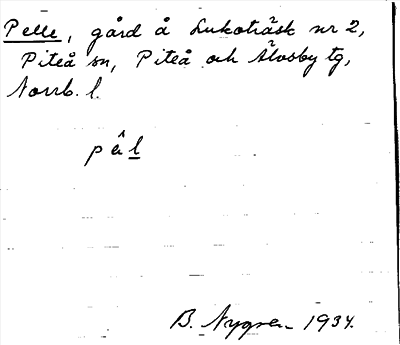 Pelle, gård å Lukoträsk nr 2,
Piteå sn, Piteå och Älvsby tg,
Norrb. l.
pâl
B. Nygren 1934.